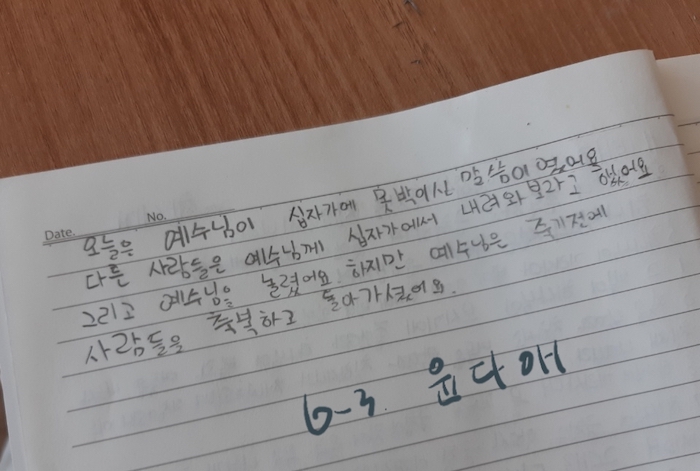 Date. No.
오늘은 예수님이 십자가에 못박이신 말씀이였어요
다른 사람들은 예수님께 십자가에서 내려와보라고 했어요
그리고 예수님을 놀렸어요. 하지만 예수님은 죽기전에
사람들을 축복하고 돌아가셨어요.
6-3. 윤다애